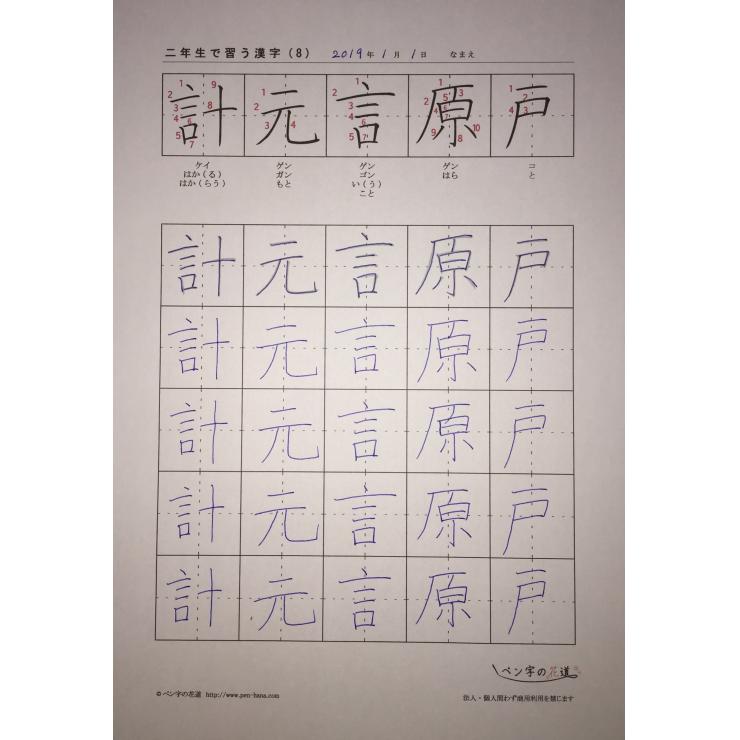 二年生で習う漢字（8） 2019年 1月 1日 なまえ
計 元 言 原 戸
ケイ ゲン ゲン ゲン コ
はか（る） ガン ゴン はら と
はか（らう） もと い（う）
こと
計 元 言 原 戸
計 元 言 原 戸
計 元 言 原 戸
計 元 言 原 戸
計 元 言 原 戸
ペン字の花道
© ペン字の花道 http://www.pen-hana.com 法人・個人問わず商用利用を禁じます